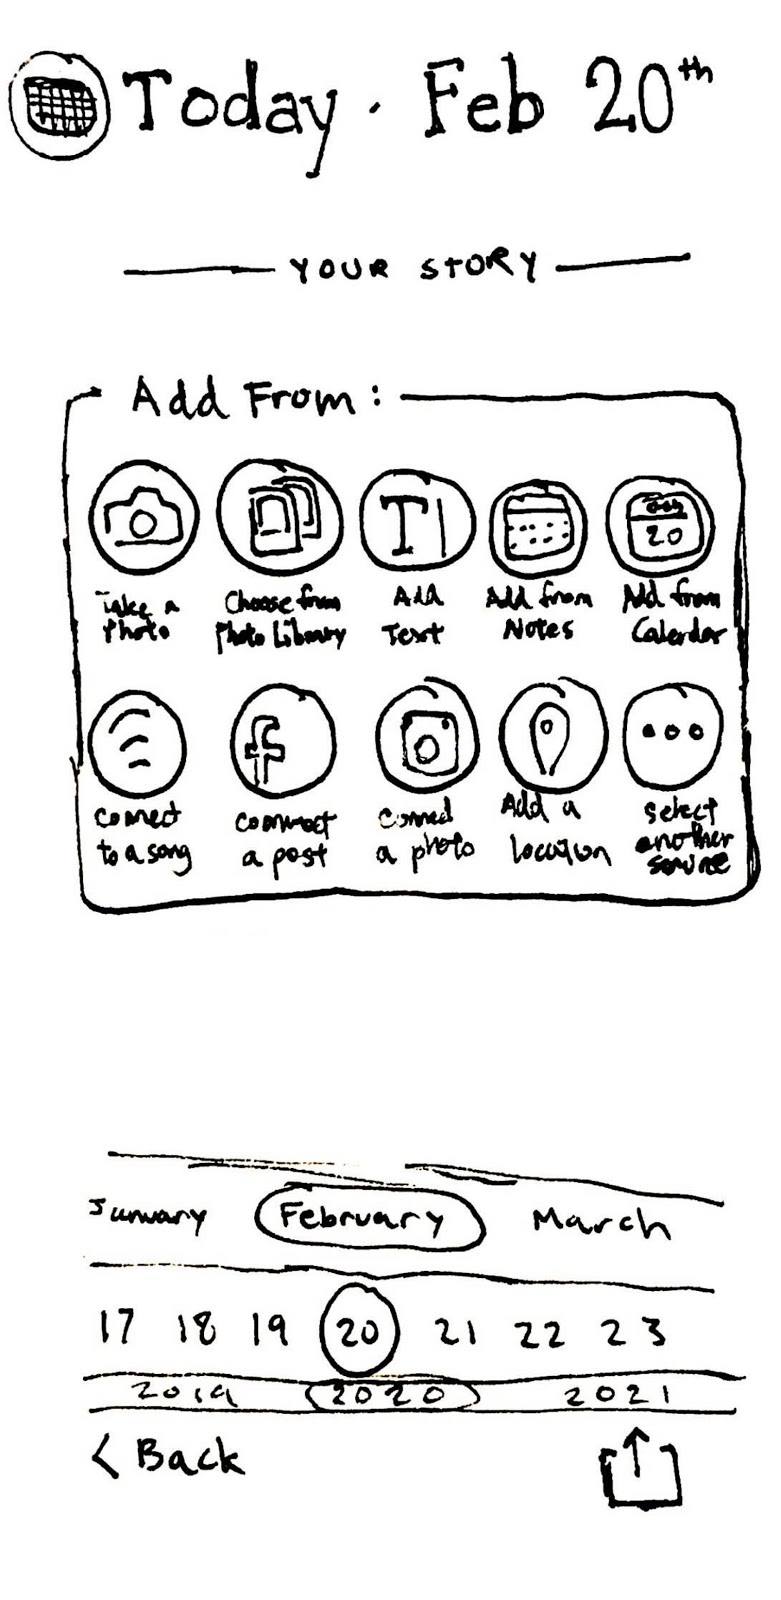 Today · Feb 20th
YOUR STORY
Add From:
T
20
Take a
Photo
Choose from
Photo Library
Add
Text
Add from
Notes
Add from
Calendar
f
Connect
to a song
Connect
a post
Connect
a photo
Add a
Location
Select
another
source
January February March
17 18 19 20 21 22 23
2019 2020 2021
< Back